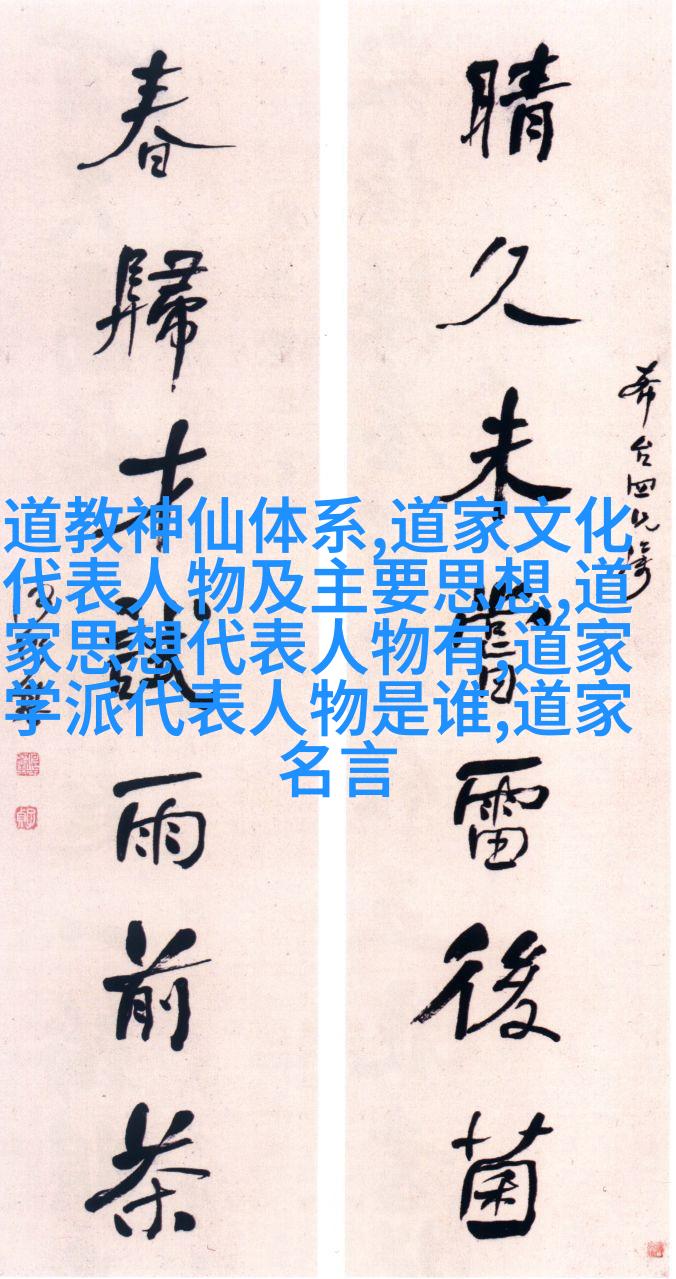 晴久未嘗雷後菌
春歸才試雨前茶
道教神仙体系,道家文化
代表人物及主要思想,道
家思想代表人物有,道家
学派代表人物是谁,道家
名言